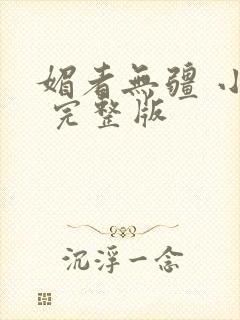 媚者無疆 小
完整版
沉浮一念